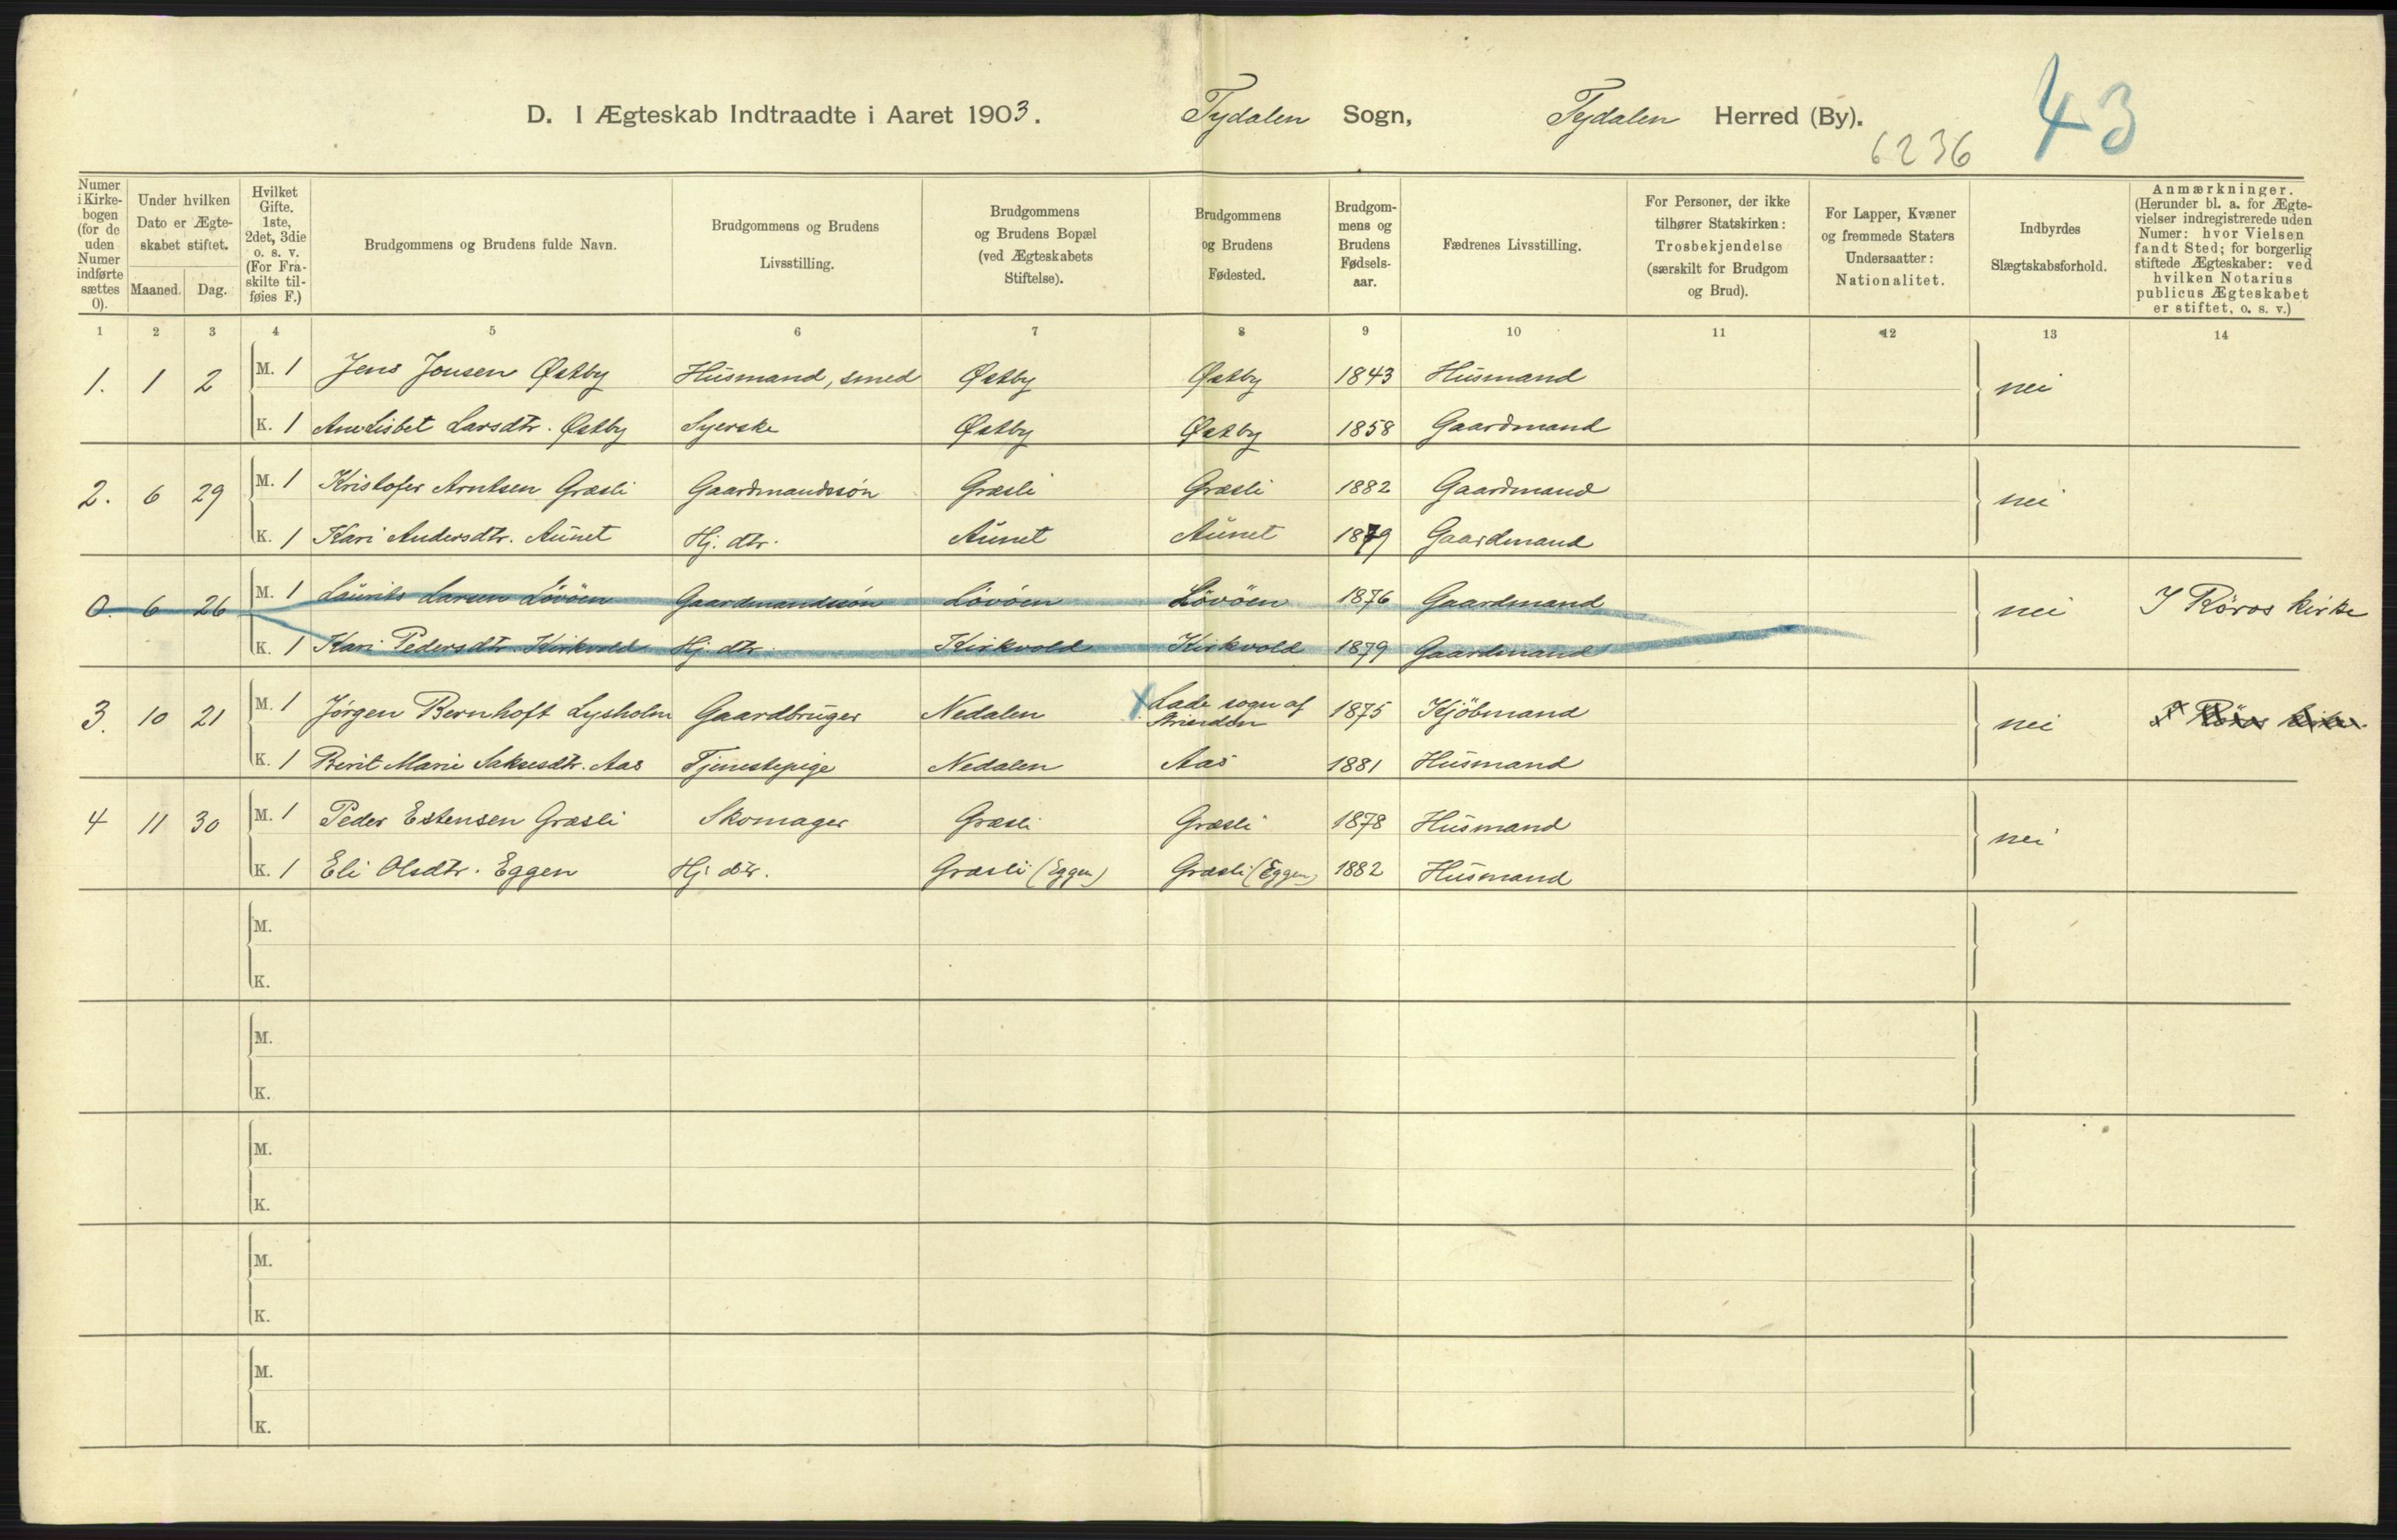 D. I Ægteskab Indtraadte i Aaret 1903. Tydalen Sogn, Tydalen Herred (By). 43
6236
Numer i Kirkebogen (for de uden Numer indførte sættes 0). | Under hvilken Dato er Ægteskabet stiftet. Maaned. Dag. | Hvilket Gifte. 1ste, 2det, 3die o. s. v. (For Fraskilte tilføies F.) | Brudgommens og Brudens fulde Navn. | Brudgommens og Brudens Livsstilling. | Brudgommens og Brudens Bopæl (ved Ægteskabets Stiftelse). | Brudgommens og Brudens Fødested. | Brudgommens og Brudens Fødselsaar. | Fædrenes Livsstilling. | For Personer, der ikke tilhører Statskirken: Trosbekjendelse (særskilt for Brudgom og Brud). | For Lapper, Kvæner og fremmede Staters Undersaatter: Nationalitet. | Indbyrdes Slægtskabsforhold. | Anmærkninger. (Herunder bl. a. for Ægtevielser indregistrerede uden Numer: hvor Vielsen fandt Sted; for borgerlig stiftede Ægteskaber: ved hvilken Notarius publicus Ægteskabet er stiftet, o. s. v.)
1 2 3 4 5 6 7 8 9 10 11 12 13 14
1. 1 2 M. 1 Jens Jonsen Østby Husmand, smed Østby Østby 1843 Husmand nei
K. 1 Ane Lisbet Larsdtr. Østby Syerske Østby Østby 1858 Gaardmand
2. 6 29 M. 1 Kristofer Arntsen Græsli Gaardmandssön Græsli Græsli 1882 Gaardmand nei
K. 1 Kari Andersdtr. Aunet Hj. dtr. Aunet Aunet 1879 Gaardmand
0. 6 26 M. 1 Laurits Larsen Lövöen Gaardmandssön Lövöen Lövöen 1876 Gaardmand nei I Röros kirke
K. 1 Kari Pedersdtr. Kirkvold Hj. dtr. Kirkvold Kirkvold 1879 Gaardmand
3. 10 21 M. 1 Jörgen Bernhoft Lysholm Gaardbruger Nedalen x Lade sogn af Strinden 1875 Kjöbmand nei I Röros kirke
K. 1 Berit Marie Saksesdtr. Aas Tjenestepige Nedalen Aas 1881 Husmand
4 11 30 M. 1 Peder Estensen Græsli Skomager Græsli Græsli 1878 Husmand nei
K. 1 Eli Olsdtr. Eggen Hj. dtr. Græsli (Eggen) Græsli (Eggen) 1882 Husmand
M.
K.
M.
K.
M.
K.
M.
K.
M.
K.